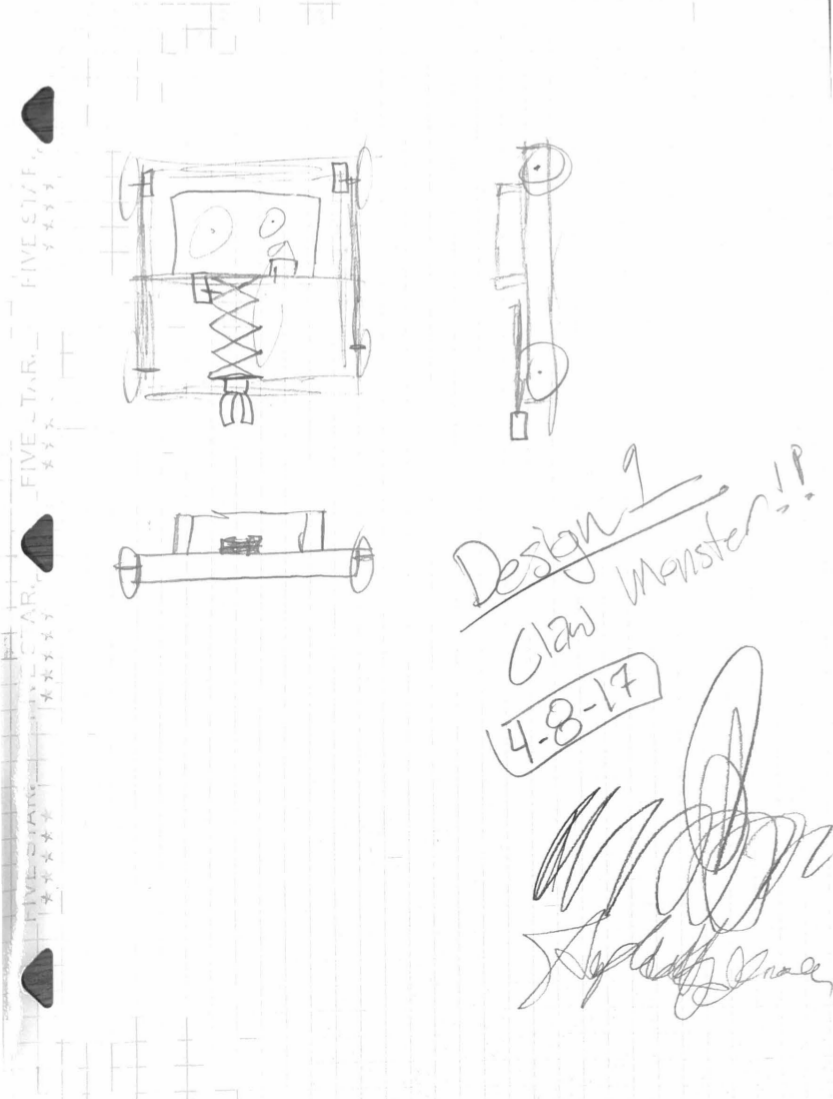 FIVE STAR.
★★★★★
FIVE STAR.
★★★★★
FIVE STAR.
★★★★★
FIVE STAR.
★★★★★
Design 1
Claw Monster!!
4-8-17